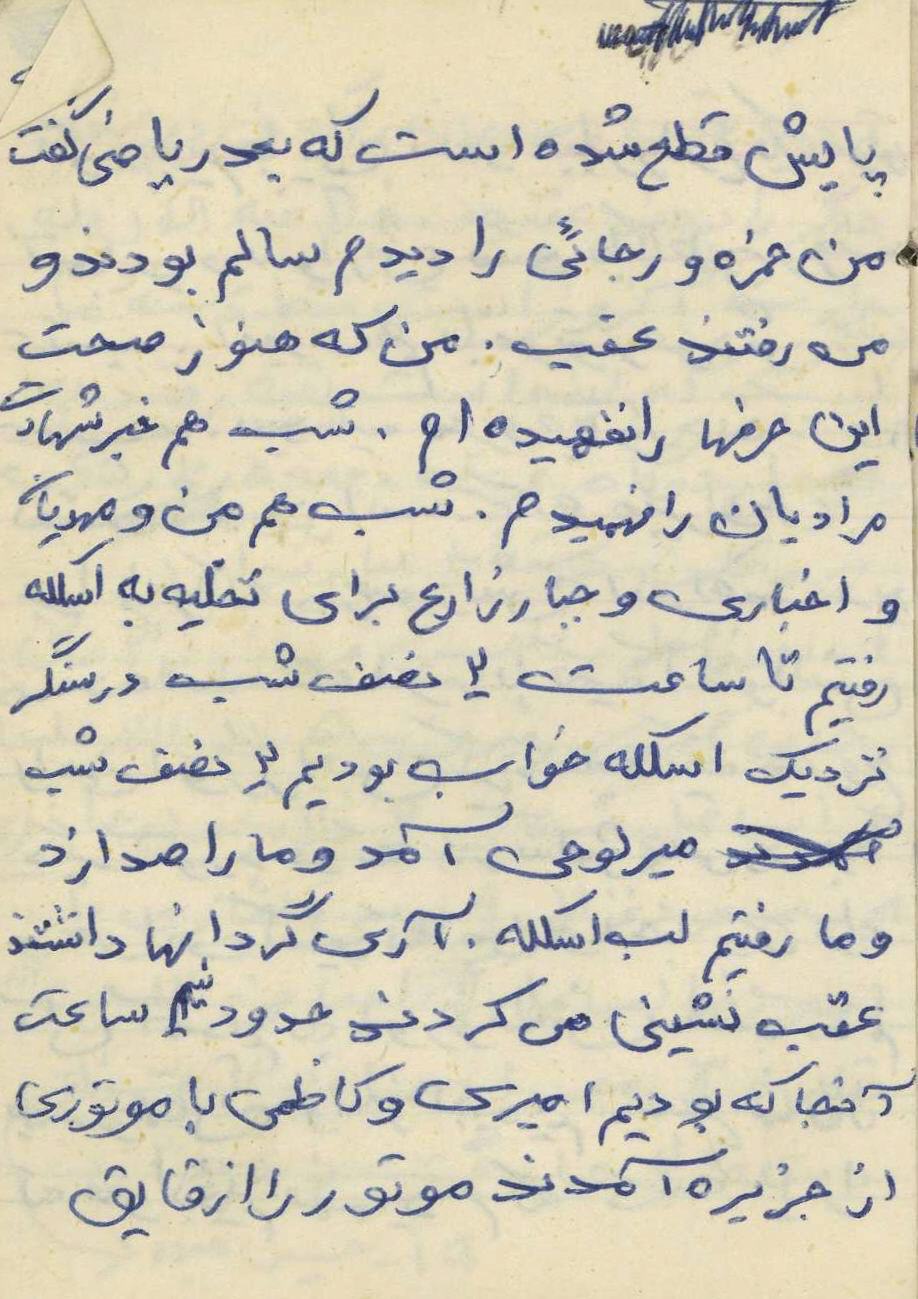 پایش قطع شده است که بعد ریاضی گفت
من حمزه و رجائی را دیدم سالم بودند و
می رفتند عقب. من که هنوز صحت
این حرفها را نفهمیده ام. شب هم خبر شهادت
مرادیان را فهمیدم. شب هم من و مهدیان
و اخباری و جبار زارع برای تخلیه به اسکله
رفتیم تا ساعت ۲ نصف شب در سنگر
نزدیک اسکله خواب بودیم ۲ نصف شب
میرلوحی آمد و ما را صدا زد
و ما رفتیم لب اسکله. آری گردانها داشتند
عقب نشینی می کردند حدود نیم ساعت
آنجا که بودیم امیری و کاظمی با موتوری
از جزیره آمدند موتور را از قایق